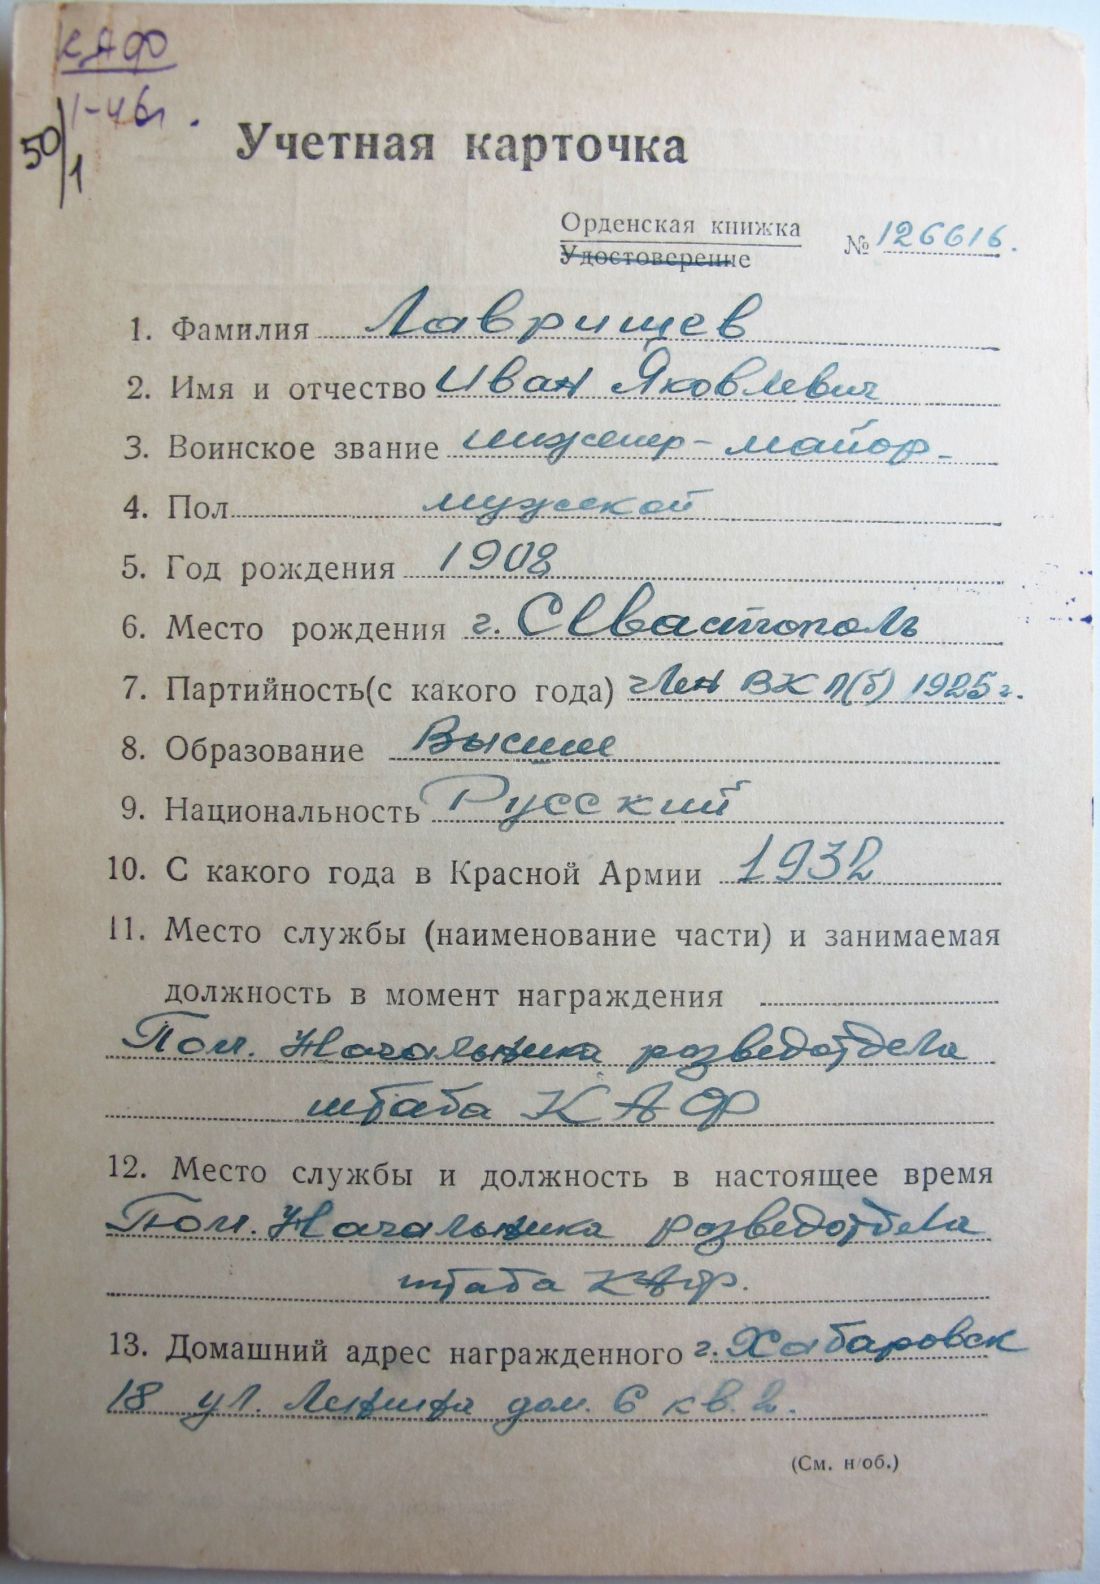 КАФ
1-46г.
50/1
Учетная карточка
Орденская книжка
Удостоверение
№ 126616.
1. Фамилия Лаврищев
2. Имя и отчество Иван Яковлевич
3. Воинское звание инженер-майор-
4. Пол мужской
5. Год рождения 1908
6. Место рождения г. Севастополь
7. Партийность(с какого года) член ВКП(б) 1925г.
8. Образование Высшее
9. Национальность Русский
10. С какого года в Красной Армии 1932
11. Место службы (наименование части) и занимаемая
должность в момент награждения
Пом. Начальника разведотдела
штаба КАФ
12. Место службы и должность в настоящее время
Пом. Начальника разведотдела
штаба КАФ.
13. Домашний адрес награжденного г. Хабаровск
18 ул. Ленина дом. 6 кв. 2.
(См. н/об.)